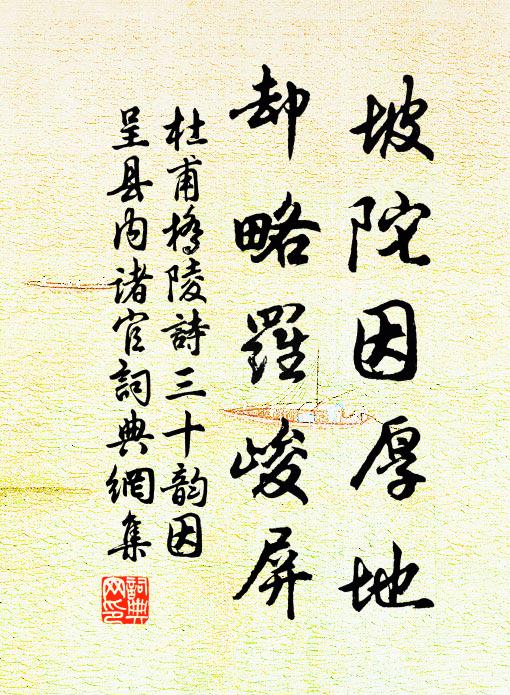 坡陀因厚地
却略羅峻屏
杜甫橋陵詩三十韵因
呈县内诸官詞典網集
詞典網印